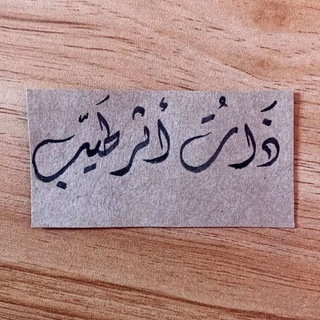 ذَاتُ أثر طَيّب